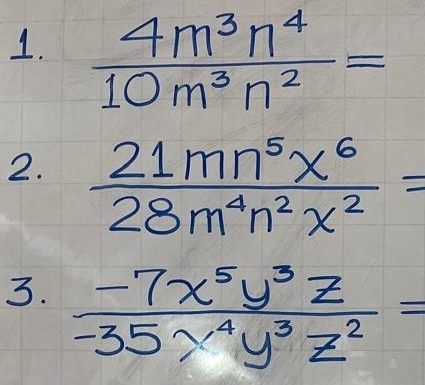 1. 4m³n⁴ / 10m³n² =
2. 21mn⁵x⁶ / 28m⁴n²x² =
3. -7x⁵y³z / -35x⁴y³z² =